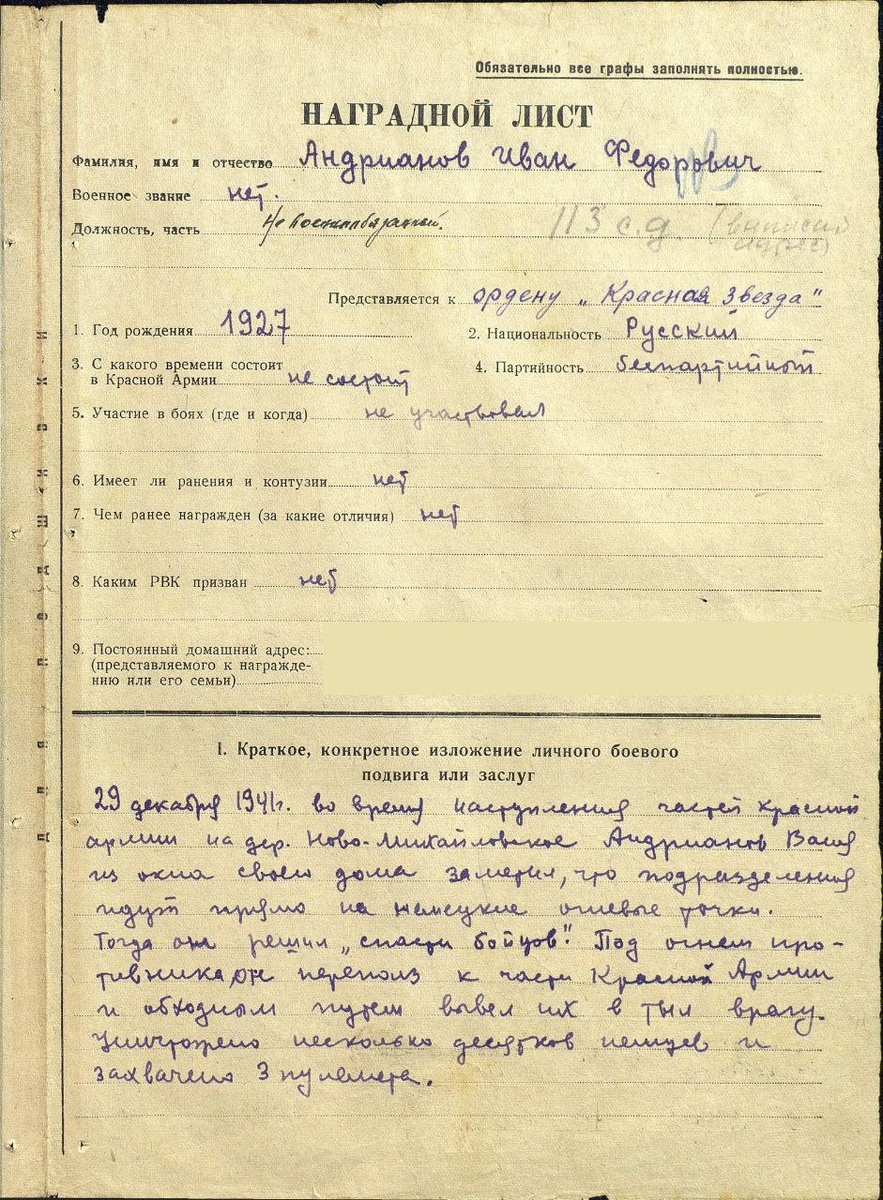 Обязательно все графы заполнять полностью.
НАГРАДНОЙ ЛИСТ
Фамилия, имя и отчество Андрианов Иван Федорович
Военное звание нет.
Должность, часть Не военнообязанный. 113 с.д.
Представляется к ордену „Красная Звезда"
1. Год рождения 1927 2. Национальность Русский
3. С какого времени состоит
в Красной Армии не состоит 4. Партийность беспартийный
5. Участие в боях (где и когда) не участвовал
6. Имеет ли ранения и контузии нет
7. Чем ранее награжден (за какие отличия) нет
8. Каким РВК призван нет
9. Постоянный домашний адрес:
(представляемого к награжде-
нию или его семьи)
I. Краткое, конкретное изложение личного боевого
подвига или заслуг
29 декабря 1941г. во время наступления частей красной
армии на дер. Ново-Михайловское Андрианов Ваня
из окна своего дома заметил, что подразделения
идут прямо на немецкие огневые точки.
Тогда он решил „спасти бойцов". Под огнем про-
тивника он переполз к части Красной Армии
и обходным путем вывел их в тыл врагу.
Уничтожено несколько десятков немцев и
захвачено 3 пулемета.